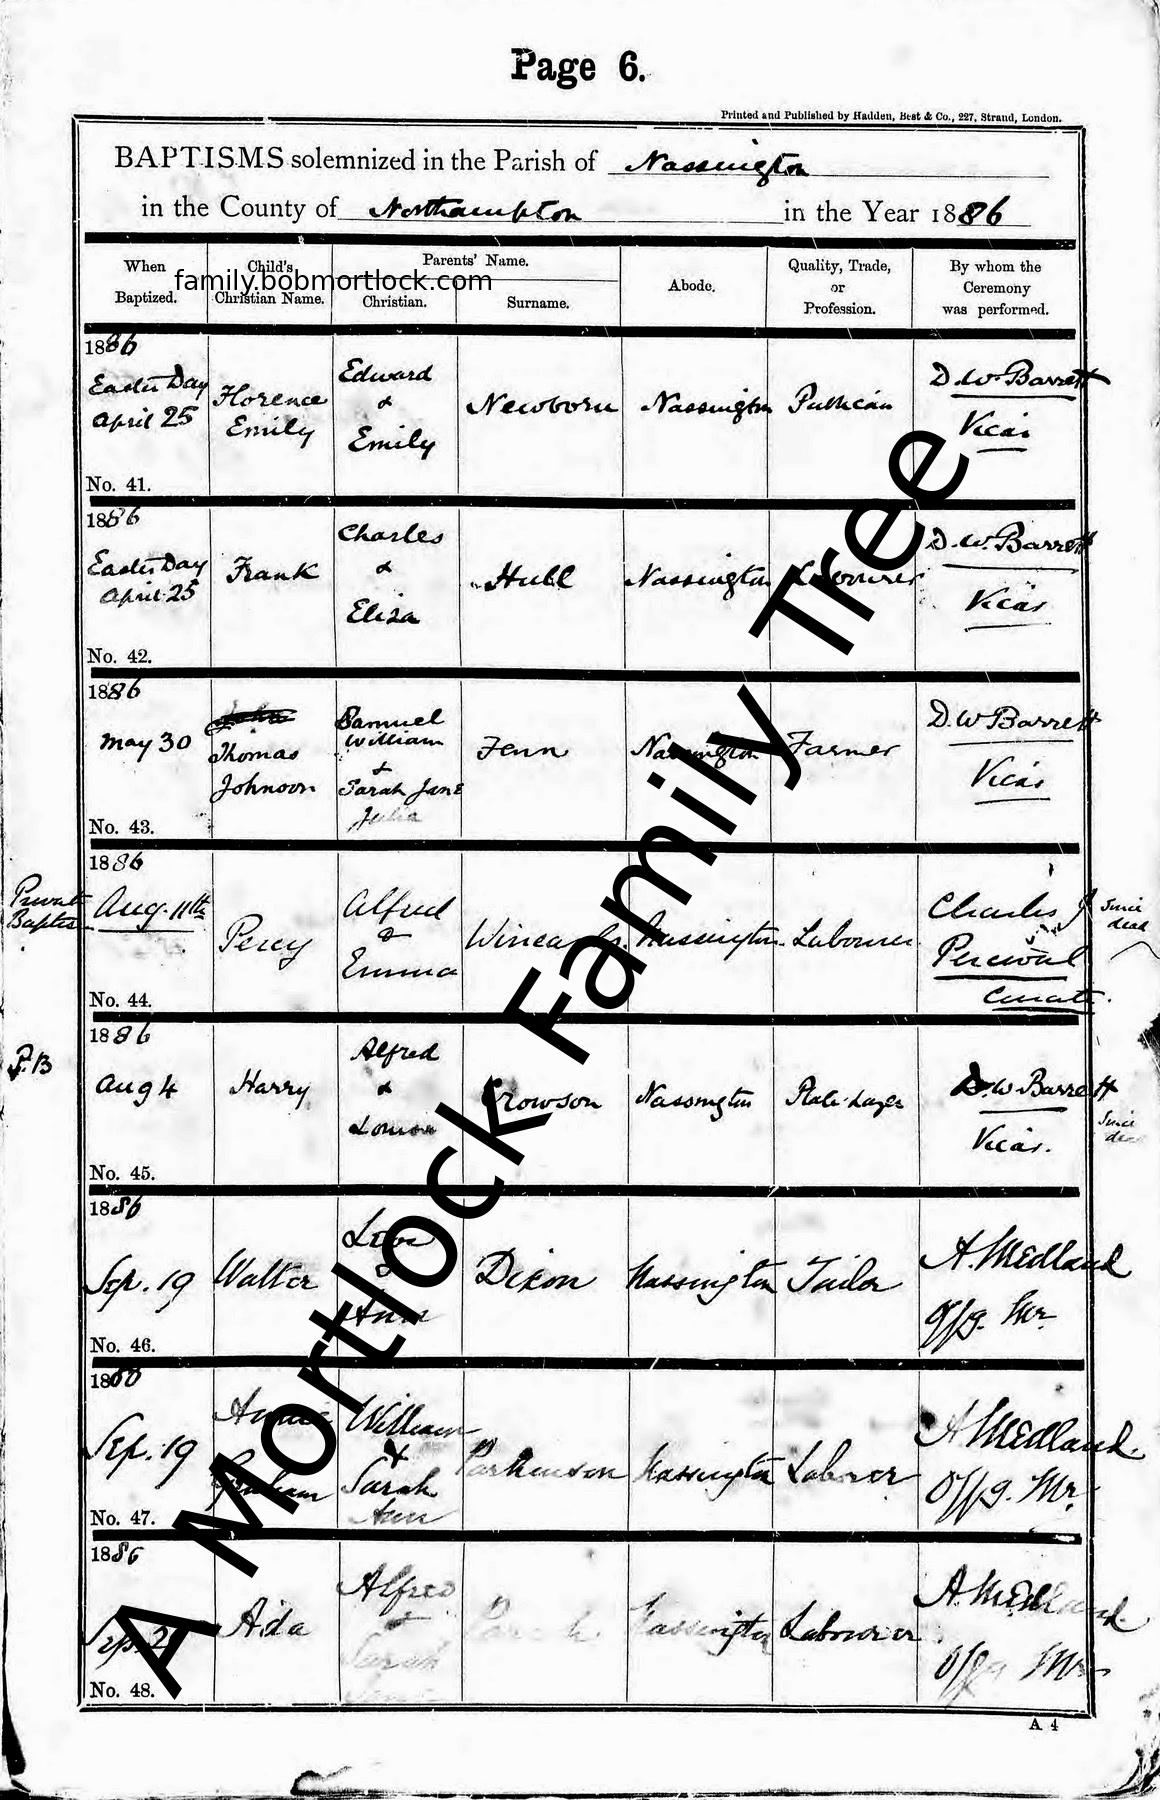 Page 6.
Printed and Published by Hadden, Best & Co., 227, Strand, London.
BAPTISMS solemnized in the Parish of Nassington
in the County of Northampton in the Year 1886
When Baptized. Child's Christian Name. Parents' Name. Christian. Surname. Abode. Quality, Trade, or Profession. By whom the Ceremony was performed.
family.bobmortlock.com
1886
Easter Day April 25 Florence Emily Edward & Emily Newborn Nassington Publican D.W. Barrett Vicar
No. 41.
1886
Easter Day April 25 Frank Charles & Eliza Hull Nassington Labourer D.W. Barrett Vicar
No. 42.
1886
May 30 Thomas Johnson Samuel William & Sarah Jane Julia Fenn Nassington Farmer D.W Barrett Vicar
No. 43.
1886
Private Baptism Aug. 11th Percy Alfred & Emma Nassington Labourer Charles J Percival Curate. Since dead
No. 44.
1886
P.B Aug 4 Harry Alfred & Louisa Crowson Nassington Plate-Layer D.W Barrett Vicar. Since dead
No. 45.
1886
Sep. 19 Walter & Dixon Nassington Tailor A. Medland Offg. Mr.
No. 46.
18
Sep. 19 Annie Graham William & Sarah Ann Parkinson Nassington Laborer A Medland. Offg. Mr.
No. 47.
1886
Sep. Ada Alfred & Sarah Nassington Labourer A. Medland. Offg Mr.
No. 48.
A 4
A Mortlock Family Tree